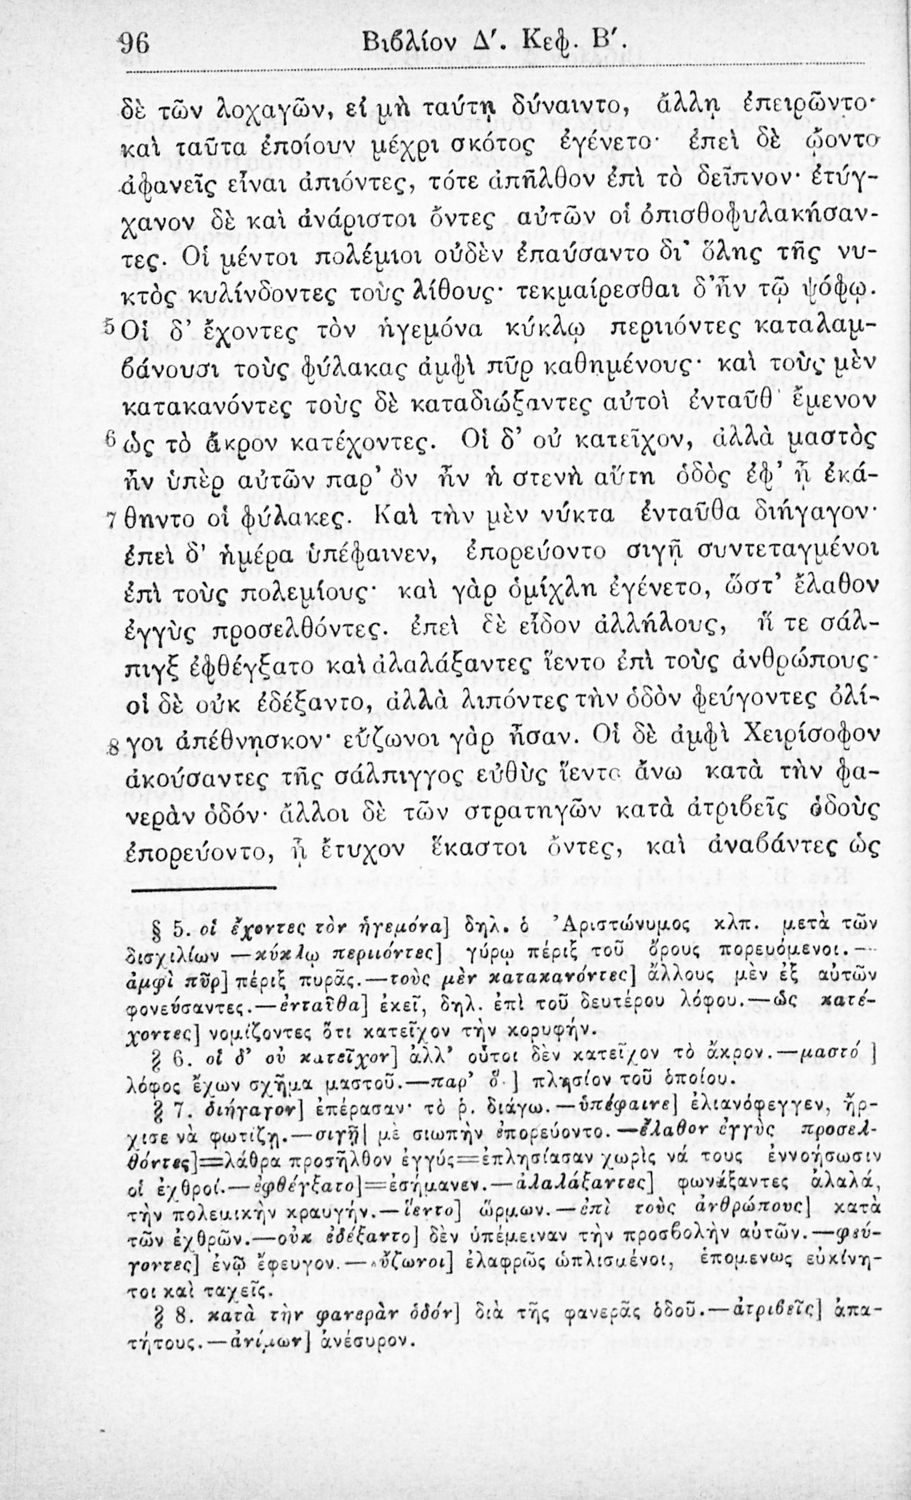 96 Βιβλίον Δ΄. Κεφ. Β΄.
δὲ τῶν λοχαγῶν, εἰ μὴ ταύτῃ δύναιντο, ἄλλῃ ἐπειρῶντο·
καὶ ταῦτα ἐποίουν μέχρι σκότος ἐγένετο· ἐπεὶ δὲ ᾤοντο
ἀφανεῖς εἶναι ἀπιόντες, τότε ἀπῆλθον ἐπὶ τὸ δεῖπνον· ἐτύγ-
χανον δὲ καὶ ἀνάριστοι ὄντες αὐτῶν οἱ ὀπισθοφυλακήσαν-
τες. Οἱ μέντοι πολέμιοι οὐδὲν ἐπαύσαντο δι' ὅλης τῆς νυ-
κτὸς κυλίνδοντες τοὺς λίθους· τεκμαίρεσθαι δ' ἦν τῷ ψόφῳ.
5 Οἱ δ' ἔχοντες τὸν ἡγεμόνα κύκλῳ περιιόντες καταλαμ-
βάνουσι τοὺς φύλακας ἀμφὶ πῦρ καθημένους· καὶ τοὺς μὲν
κατακανόντες τοὺς δὲ καταδιώξαντες αὐτοὶ ἐνταῦθ' ἔμενον
6 ὡς τὸ ἄκρον κατέχοντες. Οἱ δ' οὐ κατεῖχον, ἀλλὰ μαστὸς
ἦν ὑπὲρ αὐτῶν παρ' ὃν ἦν ἡ στενὴ αὕτη ὁδὸς ἐφ' ᾗ ἐκά-
7 θηντο οἱ φύλακες. Καὶ τὴν μὲν νύκτα ἐνταῦθα διήγαγον·
ἐπεὶ δ' ἡμέρα ὑπέφαινεν, ἐπορεύοντο σιγῇ συντεταγμένοι
ἐπὶ τοὺς πολεμίους· καὶ γὰρ ὁμίχλη ἐγένετο, ὥστ' ἔλαθον
ἐγγὺς προσελθόντες. ἐπεὶ δὲ εἶδον ἀλλήλους, ἥ τε σάλ-
πιγξ ἐφθέγξατο καὶ ἀλαλάξαντες ἵεντο ἐπὶ τοὺς ἀνθρώπους·
οἱ δὲ οὐκ ἐδέξαντο, ἀλλὰ λιπόντες τὴν ὁδὸν φεύγοντες ὀλί-
8 γοι ἀπέθνησκον· εὔζωνοι γὰρ ἦσαν. Οἱ δὲ ἀμφὶ Χειρίσοφον
ἀκούσαντες τῆς σάλπιγγος εὐθὺς ἵεντο ἄνω κατὰ τὴν φα-
νερὰν ὁδόν· ἄλλοι δὲ τῶν στρατηγῶν κατὰ ἀτριβεῖς ὁδοὺς
ἐπορεύοντο, ᾗ ἔτυχον ἕκαστοι ὄντες, καὶ ἀναβάντες ὡς
§ 5. οἱ ἔχοντες τὸν ἡγεμόνα] δηλ. ὁ Ἀριστώνυμος κλπ. μετὰ τῶν
δισχιλίων —κύκλῳ περιιόντες] γύρῳ πέριξ τοῦ ὄρους πορευόμενοι.—
ἀμφὶ πῦρ] πέριξ πυρᾶς.—τοὺς μὲν κατακανόντες] ἄλλους μὲν ἐξ αὐτῶν
φονεύσαντες.—ἐνταῦθα] ἐκεῖ, δηλ. ἐπὶ τοῦ δευτέρου λόφου.—ὡς κατέ-
χοντες] νομίζοντες ὅτι κατεῖχον τὴν κορυφήν.
§ 6. οἱ δ' οὐ κατεῖχον] ἀλλ' οὗτοι δὲν κατεῖχον τὸ ἄκρον.—μαστό ]
λόφος ἔχων σχῆμα μαστοῦ.—παρ' ὅ ] πλησίον τοῦ ὁποίου.
§ 7. διήγαγον] ἐπέρασαν· τὸ ῥ. διάγω.—ὑπέφαινε] ἐλιανόφεγγεν, ἤρ-
χισε νὰ φωτίζῃ.—σιγῇ] μὲ σιωπὴν ἐπορεύοντο.—ἔλαθον ἐγγὺς προσελ-
θόντες]=λάθρα προσῆλθον ἐγγύς=ἐπλησίασαν χωρὶς νά τους ἐννοήσωσιν
οἱ ἐχθροί.—ἐφθέγξατο]=ἐσήμανεν.—ἀλαλάξαντες] φωνάξαντες ἀλαλά,
τὴν πολεμικὴν κραυγήν.—ἵεντο] ὥρμων.—ἐπὶ τοὺς ἀνθρώπους] κατὰ
τῶν ἐχθρῶν.—οὐκ ἐδέξαντο] δὲν ὑπέμειναν τὴν προσβολὴν αὐτῶν.—φεύ-
γοντες] ἐνῷ ἔφευγον.—εὔζωνοι] ἐλαφρῶς ὡπλισμένοι, ἑπομένως εὐκίνη-
τοι καὶ ταχεῖς.
§ 8. κατὰ τὴν φανερὰν ὁδόν] διὰ τῆς φανερᾶς ὁδοῦ.—ἀτριβεῖς] ἀπα-
τήτους.—ἀνίμων] ἀνέσυρον.